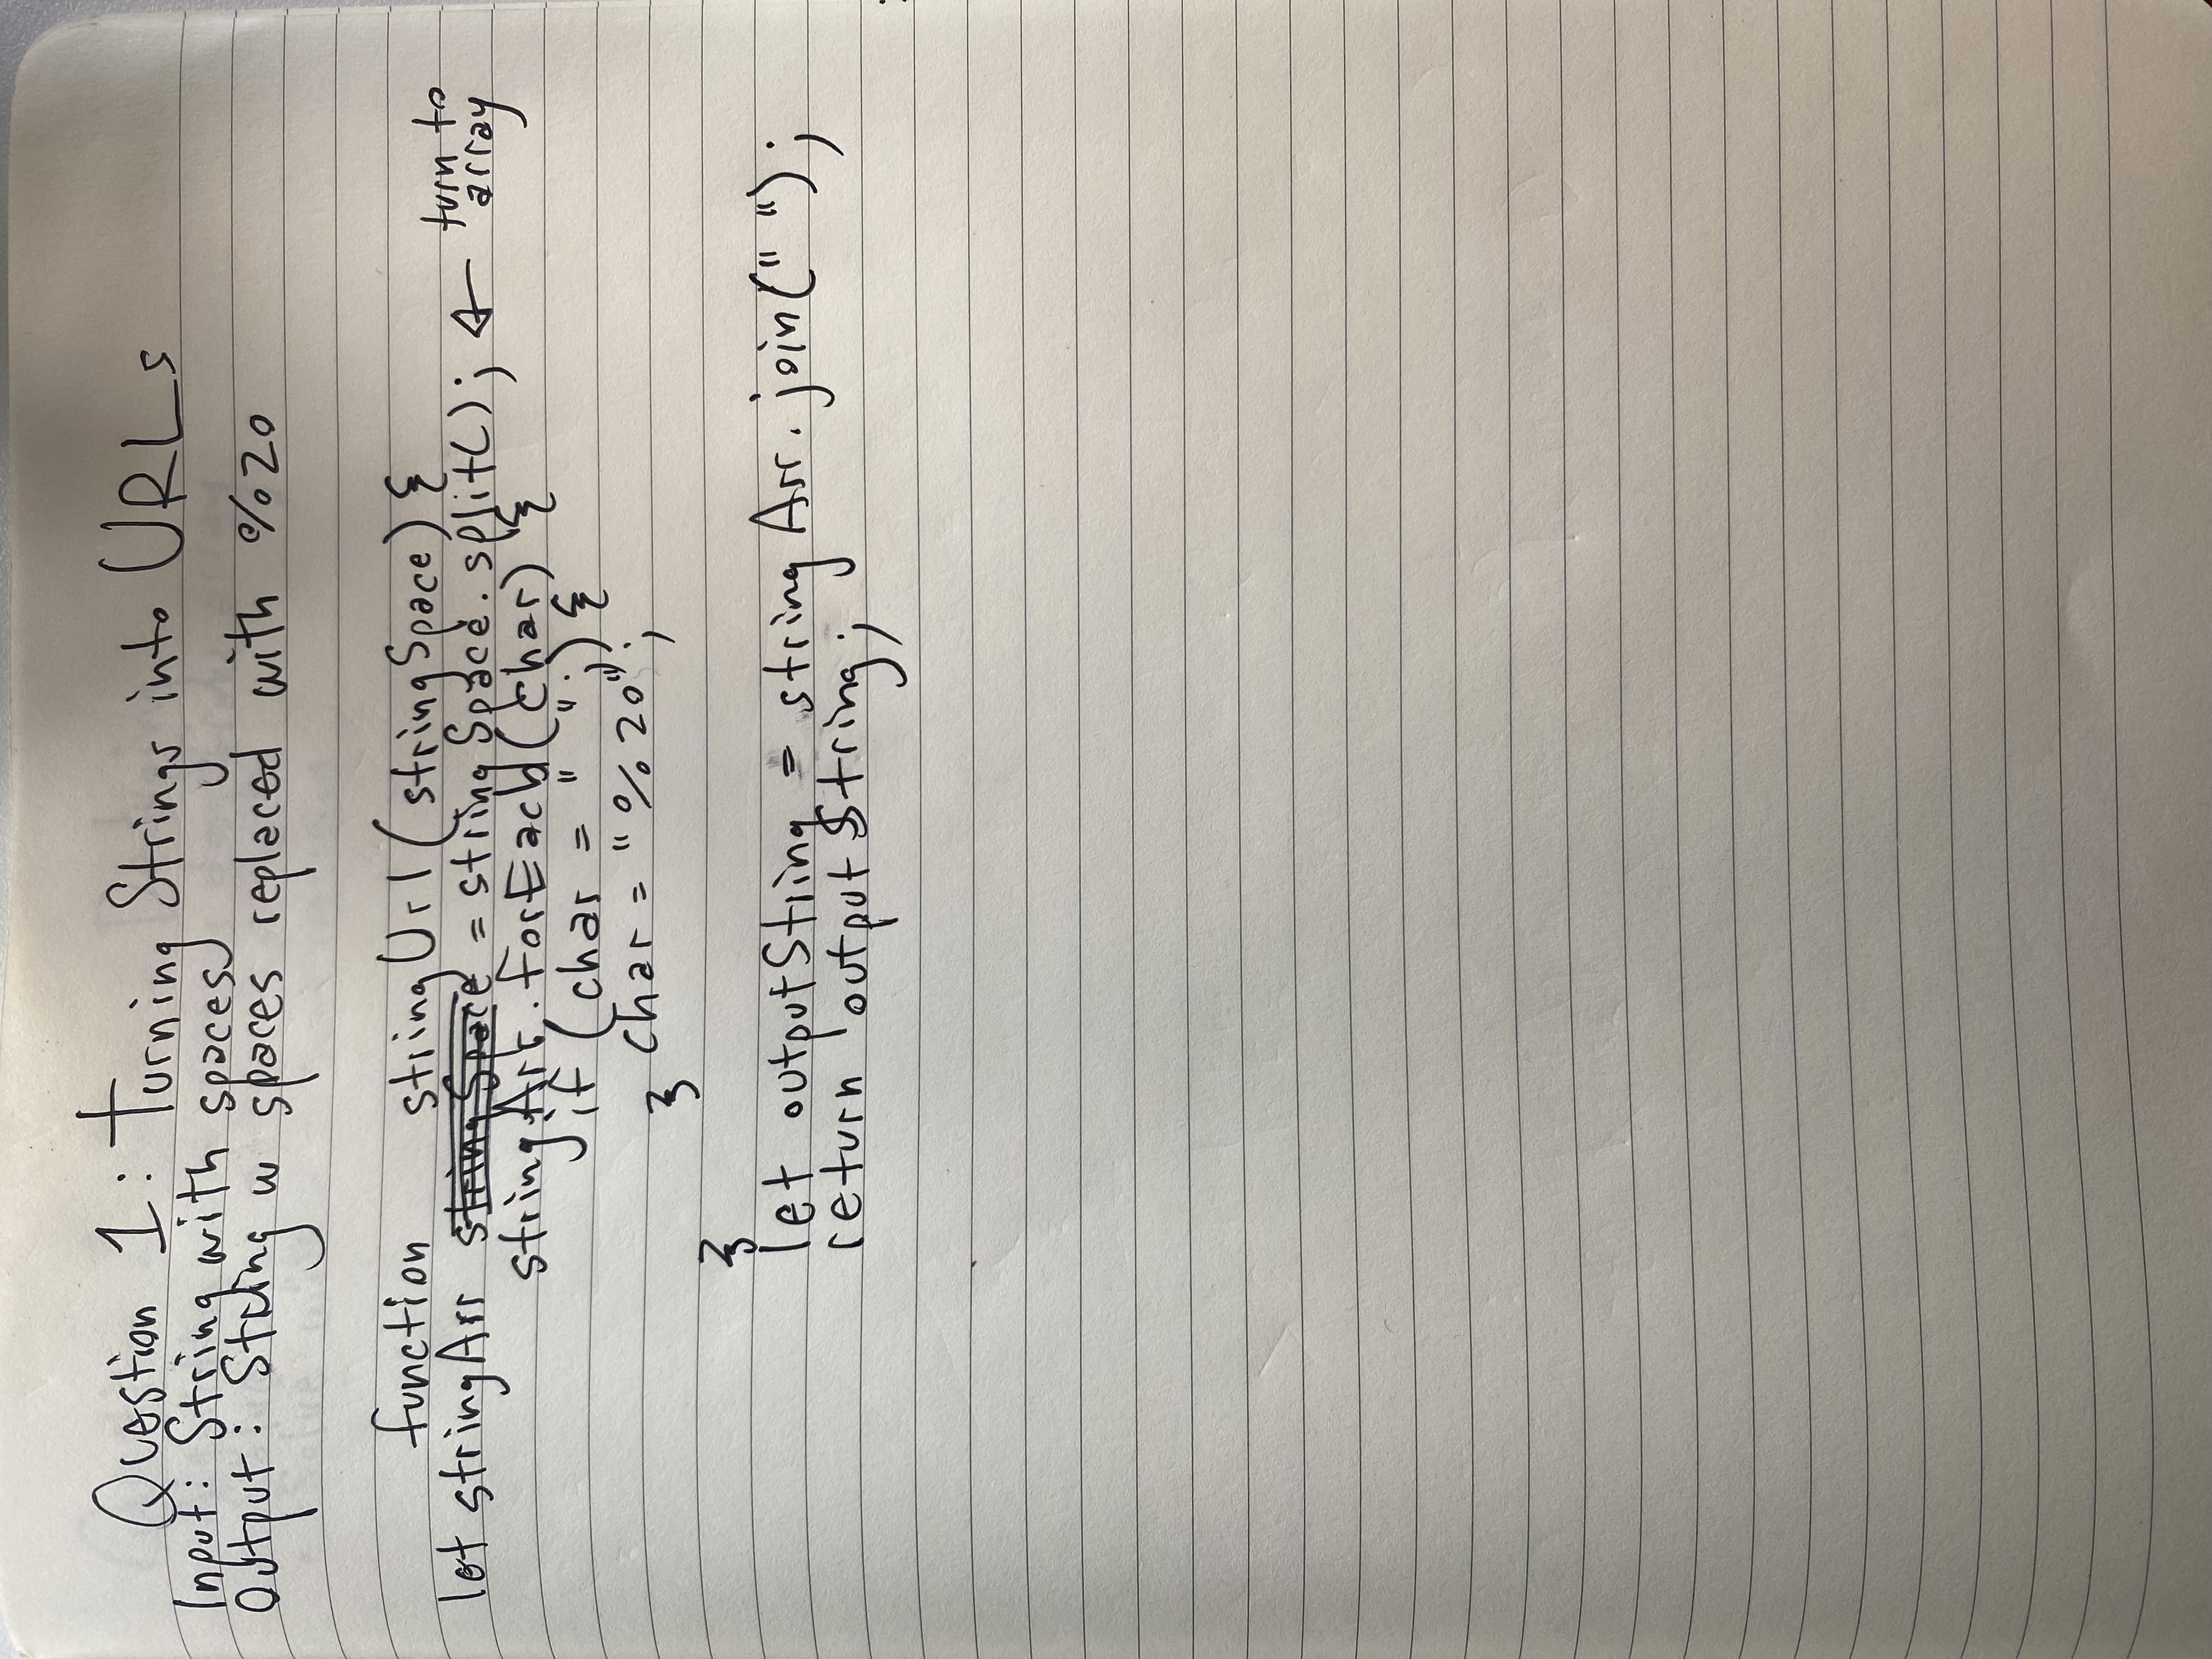 Question 1: Turning Strings into URLs
Input: String with spaces
Output: String w spaces replaced with %20
function stringUrl(stringSpace) {
let stringArr stringSpace = stringSpace.split(); ← turn to array
stringArr.forEach(char) {
if (char = " ";) {
char = "%20";
}
}
let outputString = stringArr.join(" ");
return outputString;